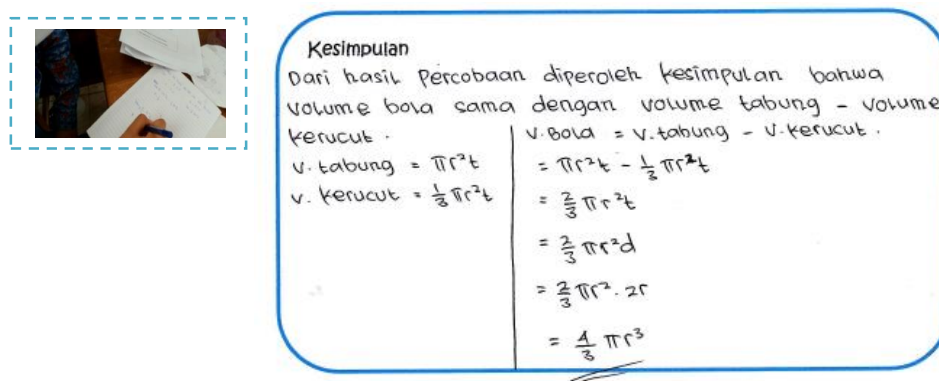 Kesimpulan
Dari hasil Percobaan diperoleh kesimpulan bahwa
volume bola sama dengan volume tabung - volume
kerucut.
V. tabung = πr²t
V. kerucut = 1/3 πr²t
V. Bola = V. tabung - V. kerucut.
= πr²t - 1/3 πr²t
= 2/3 πr²t
= 2/3 πr²d
= 2/3 πr² . 2r
= 4/3 πr³